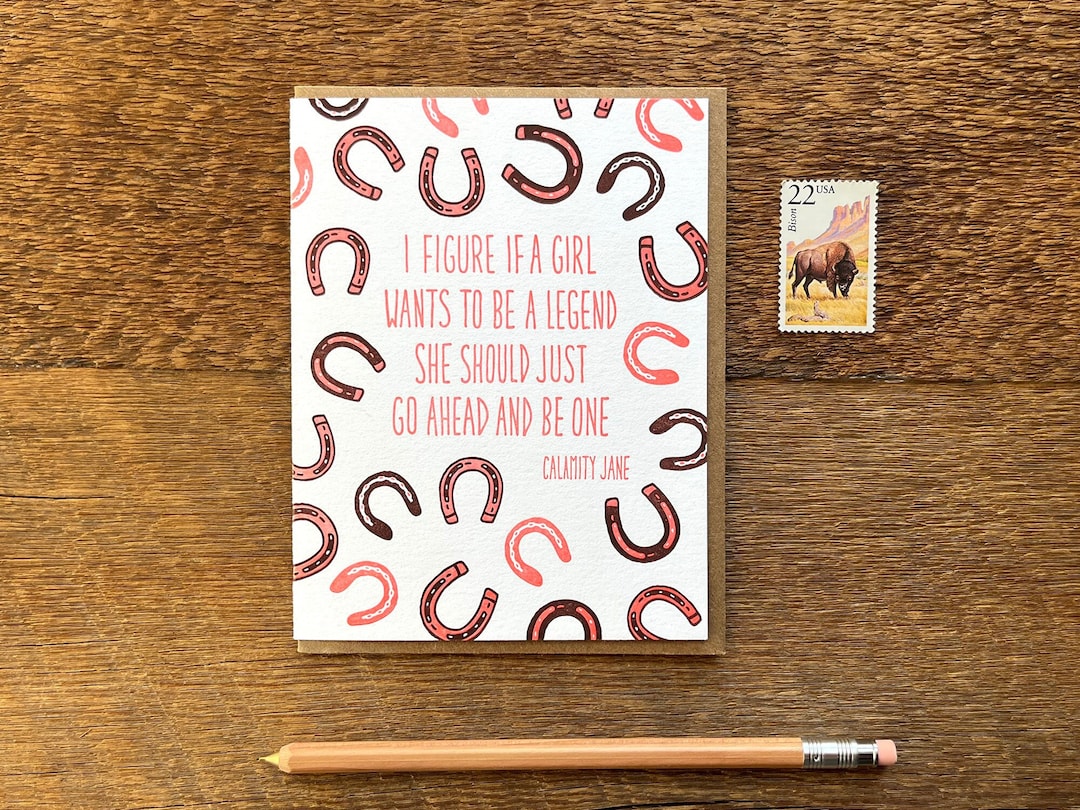 I FIGURE IF A GIRL
WANTS TO BE A LEGEND
SHE SHOULD JUST
GO AHEAD AND BE ONE
CALAMITY JANE
22 USA
Bison